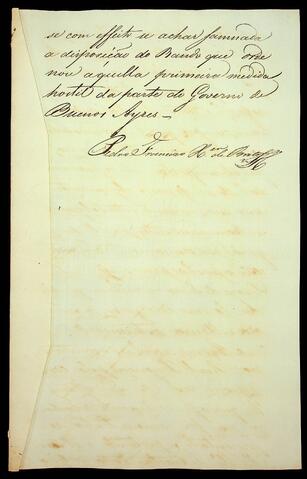 se com effeito se achar
a disposição do Bando que orde
nou aquella primeira medida
hostil da parte do Governo de
Buenos Ayres_
Pedro Francisco de